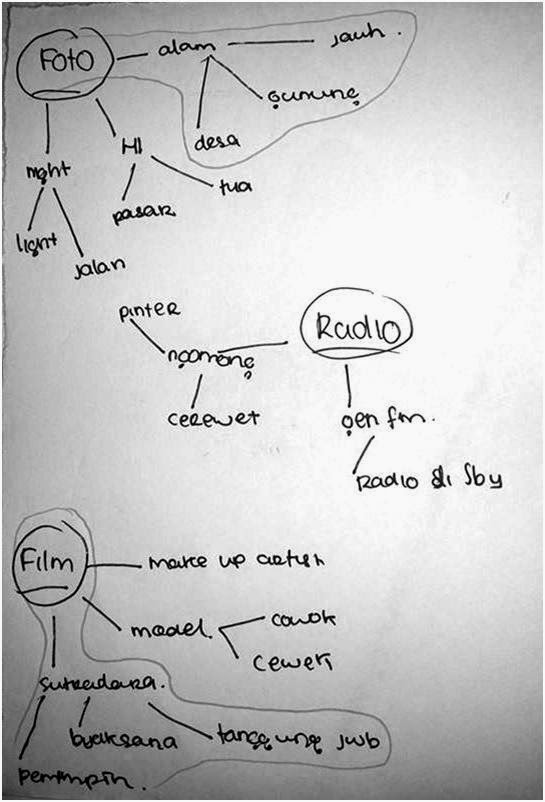 Foto
alam
jauh.
gunung
desa
HI
tua
pasar
night
light
jalan
pinter
ngomong
cerewet
Radio
gen fm.
Radio di Sby
Film
make up artist
model.
cowok
cewek
sutradara.
bijaksana
tanggung jwb
pemimpin.